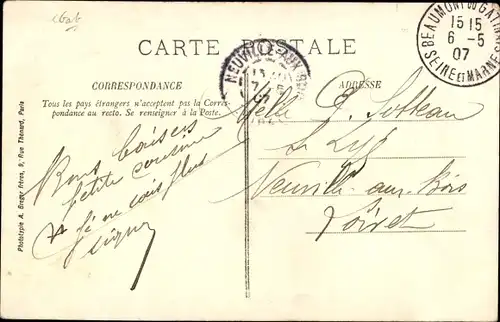 CARTE POSTALE
CORRESPONDANCE
Tous les pays étrangers n'acceptent pas la Corres-
pondance au recto. Se renseigner à la Poste.
ADRESSE
BEAUMONT DU GATINAIS
15 15
6 - 5
07
SEINE ET MARNE
NEUVILLE-AUX-BOIS
7
07
Melle
Neuville aux Bois
Loiret
Bons baisers
petite cousine
je ne vais plus
Phototypie A. Breger Frères, 9, Rue Thénard, Paris